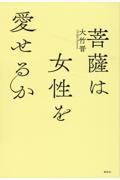 菩薩は
女性を
愛せるか
大竹晋